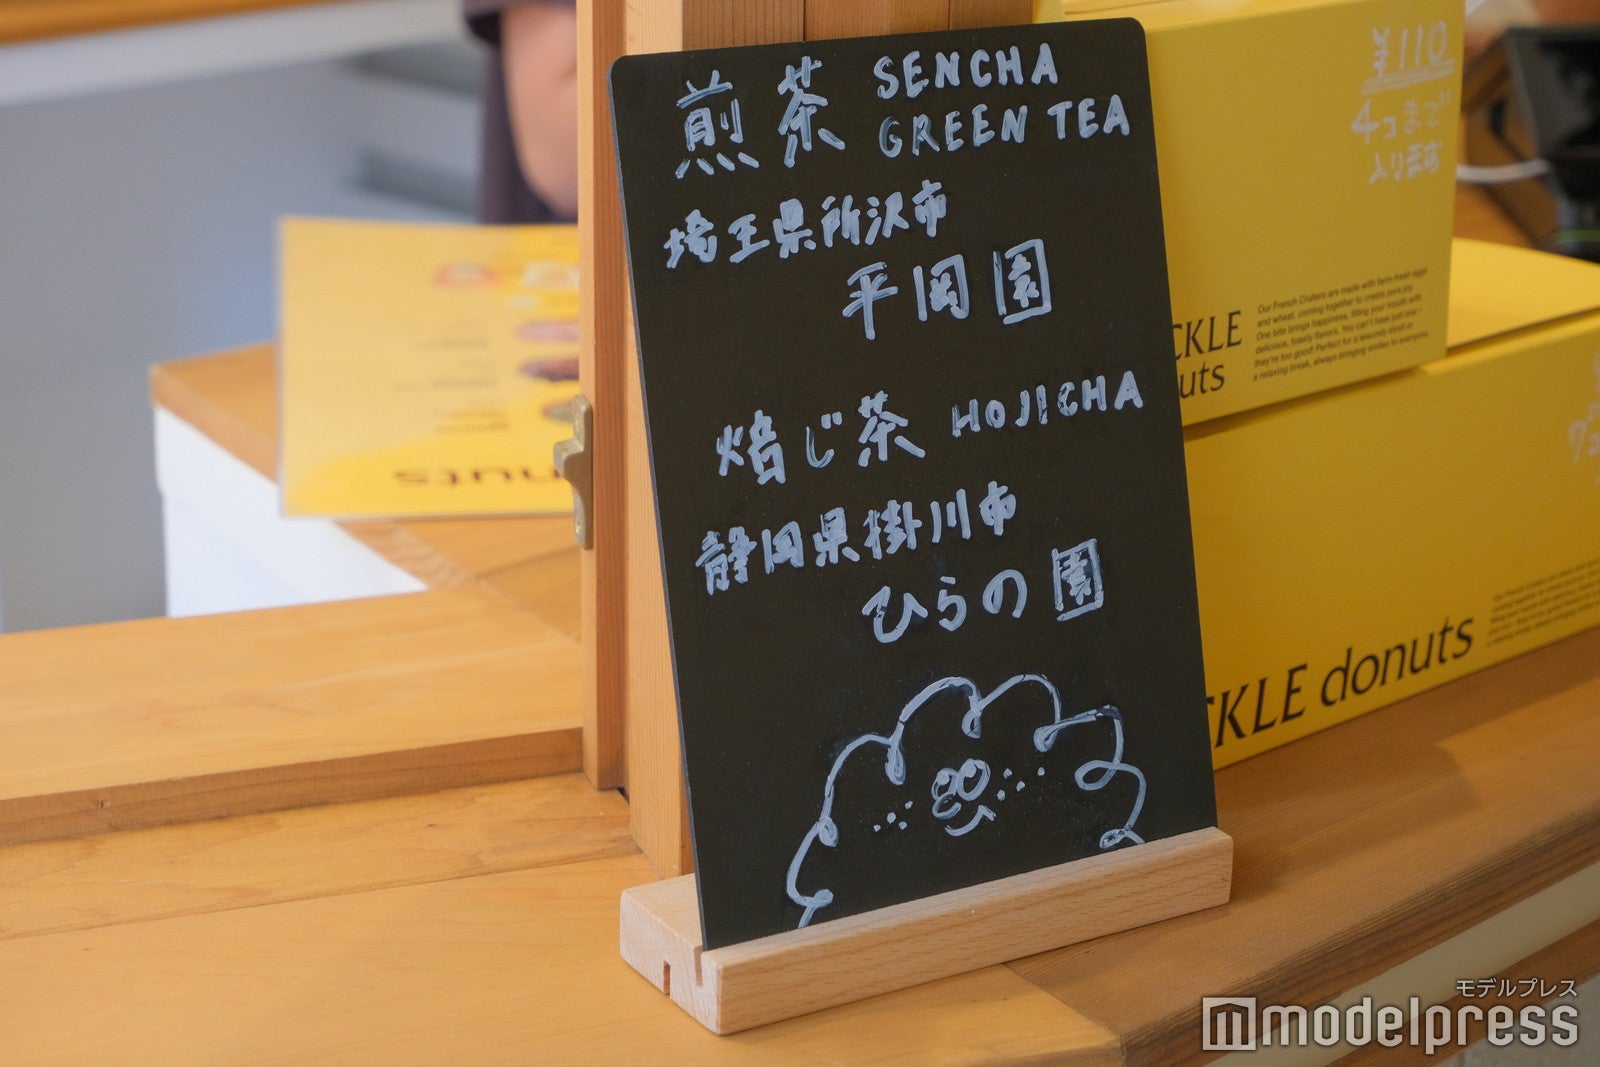 煎茶 SENCHA
GREEN TEA
埼玉県所沢市
平岡園
焙じ茶 HOJICHA
静岡県掛川市
ひらの園
¥110
4コまで
入ります
CKLE
nuts
Our French Crullers are made with farm-fresh eggs
and wheat, coming together to create pure joy.
One bite brings happiness, filling your mouth with
delicious, toasty flavors. You can't have just one –
they're too good! Perfect for a leisurely stroll or
a relaxing break, always bringing smiles to everyone.
CKLE donuts
onuts
モデルプレス
modelpress